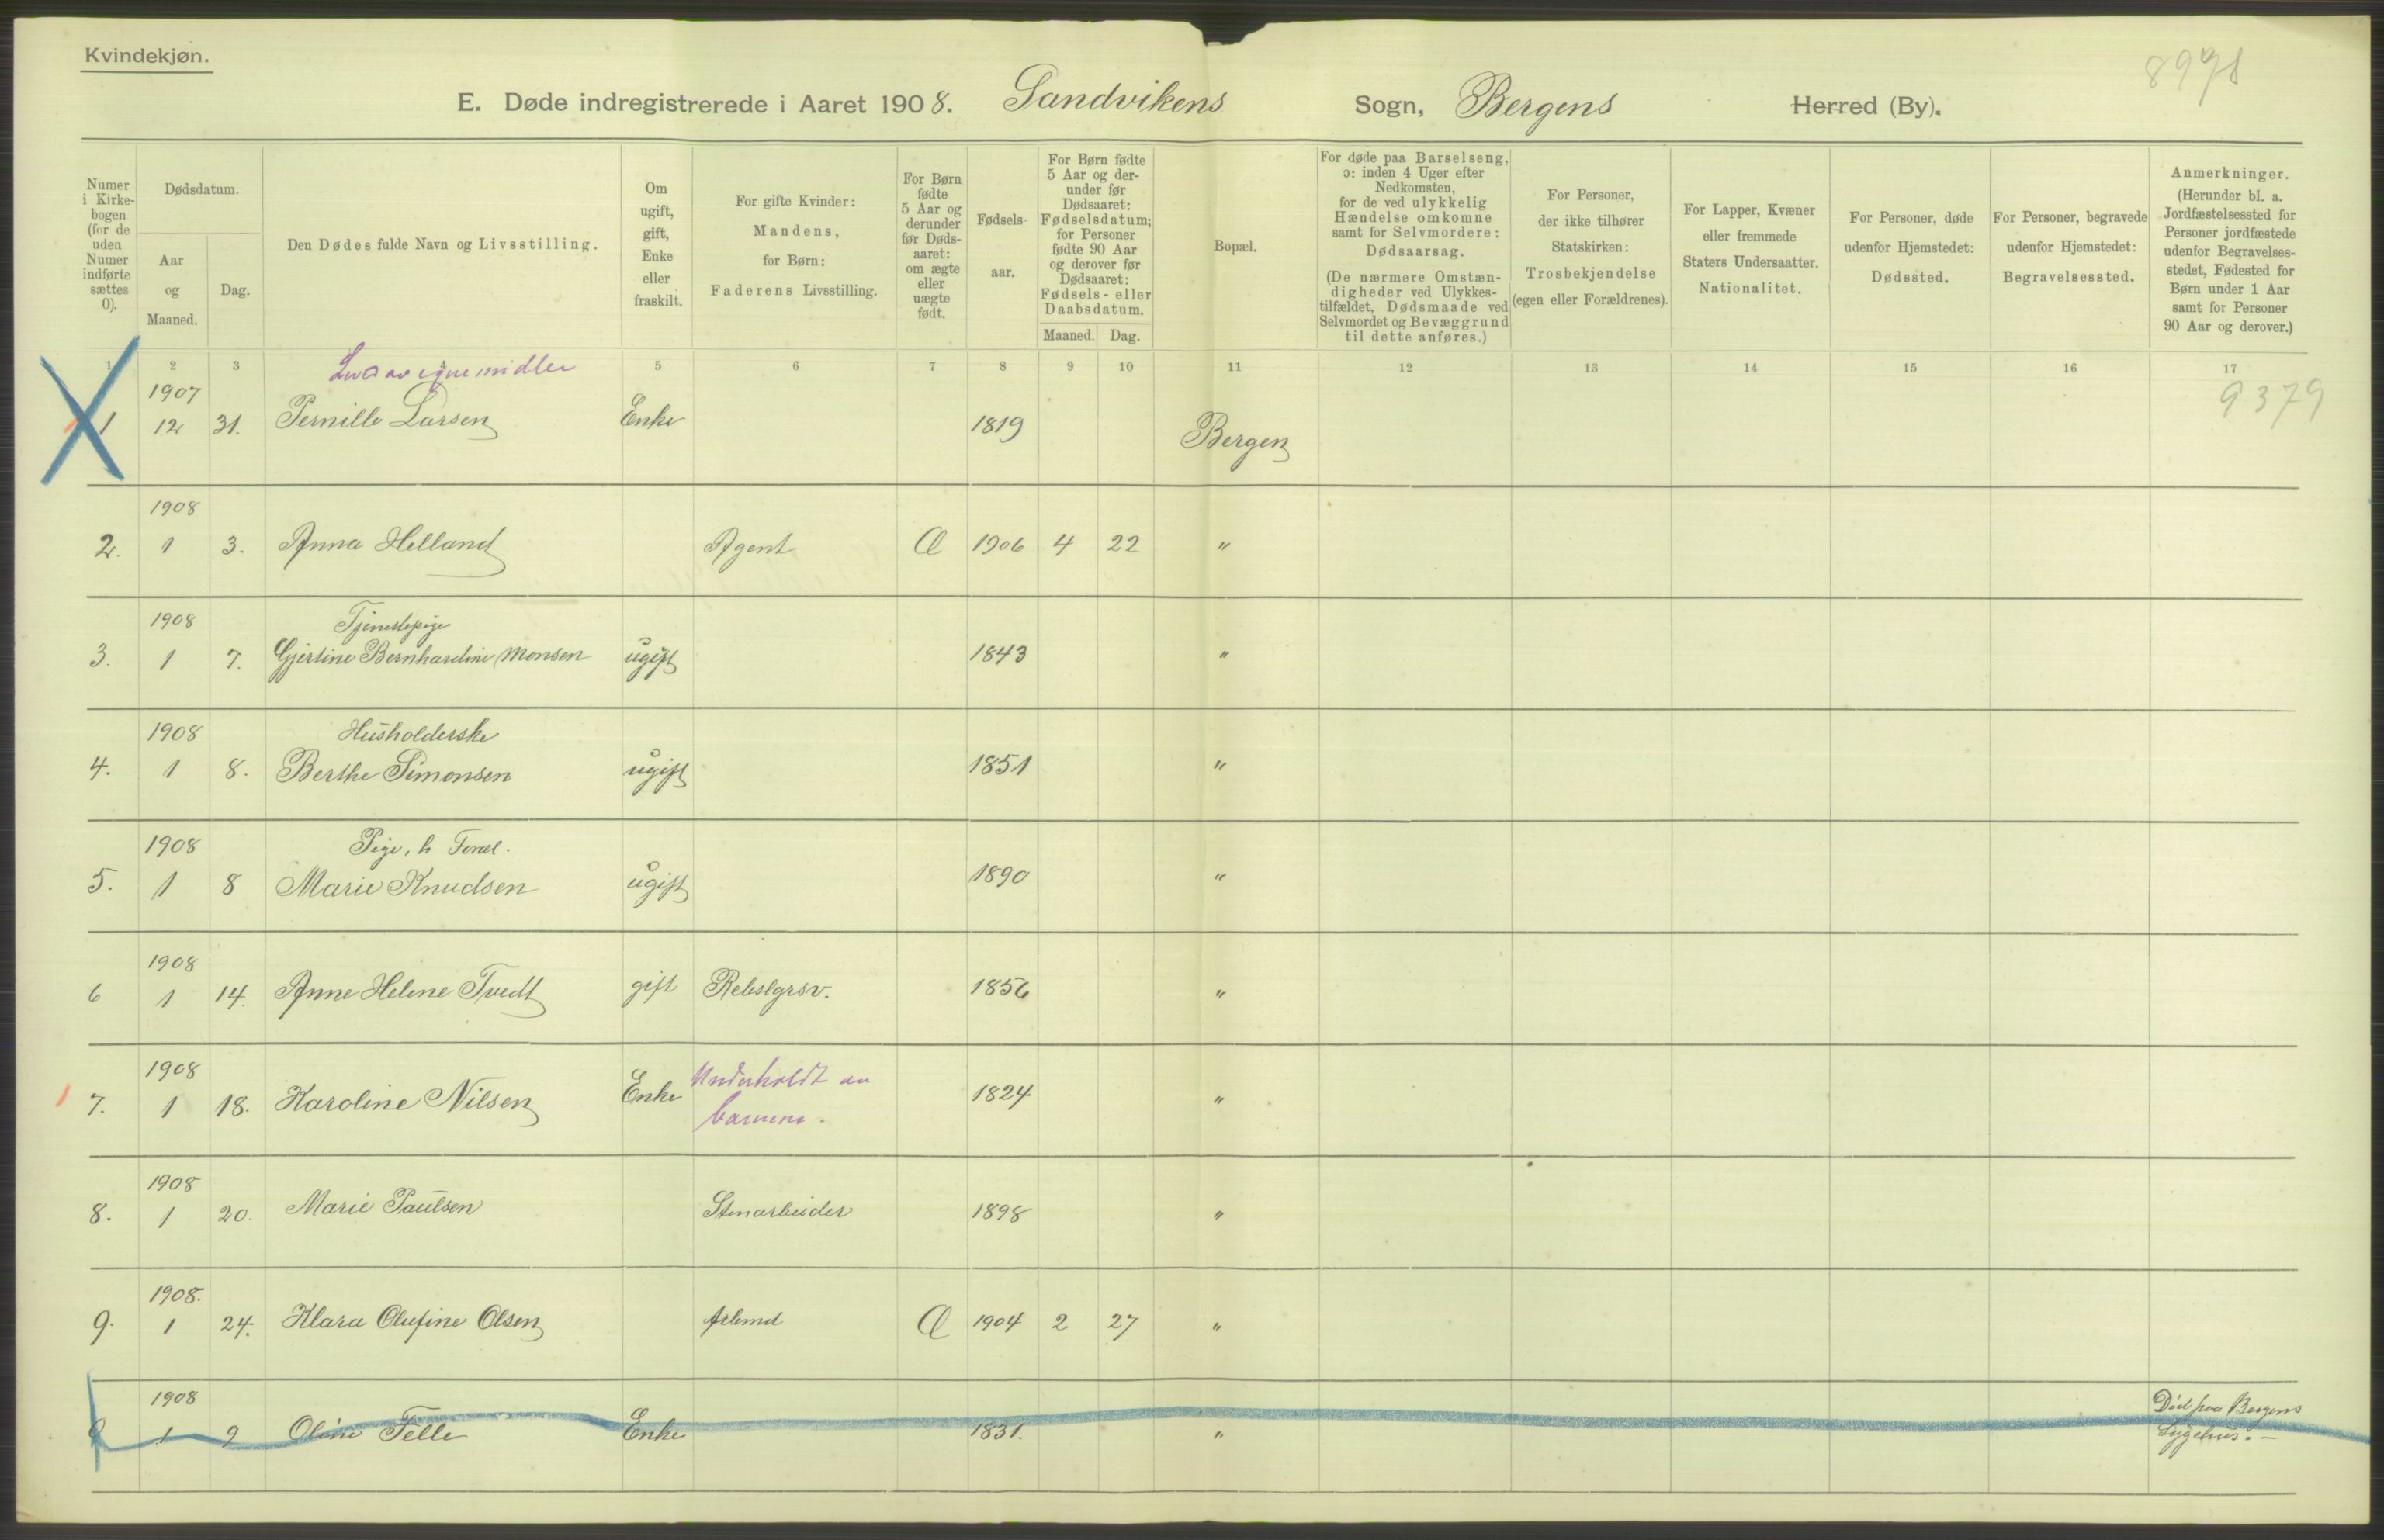 Kvindekjøn.
8998
E. Døde indregistrerede i Aaret 1908. Sandvikens Sogn, Bergens Herred (By).
Numer i Kirke-bogen (for de uden Numer indførte sættes 0).
Dødsdatum.
Aar og Maaned.
Dag.
Den Dødes fulde Navn og Livsstilling.
Om ugift, gift, Enke eller fraskilt.
For gifte Kvinder: Mandens, for Børn: Faderens Livsstilling.
For Børn fødte 5 Aar og derunder før Døds-aaret: om ægte eller uægte født.
Fødsels-aar.
For Børn fødte 5 Aar og der-under før Dødsaaret: Fødselsdatum; for Personer fødte 90 Aar og derover før Dødsaaret: Fødsels- eller Daabsdatum.
Maaned. Dag.
Bopæl.
For døde paa Barselseng, ɔ: inden 4 Uger efter Nedkomsten, for de ved ulykkelig Hændelse omkomne samt for Selvmordere: Dødsaarsag. (De nærmere Omstæn-digheder ved Ulykkes-tilfældet, Dødsmaade ved Selvmordet og Bevæggrund til dette anføres.)
For Personer, der ikke tilhører Statskirken: Trosbekjendelse (egen eller Forældrenes).
For Lapper, Kvæner eller fremmede Staters Undersaatter. Nationalitet.
For Personer, døde udenfor Hjemstedet: Dødssted.
For Personer, begravede udenfor Hjemstedet: Begravelsessted.
Anmerkninger. (Herunder bl. a. Jordfæstelsessted for Personer jordfæstede udenfor Begravelses-stedet, Fødested for Børn under 1 Aar samt for Personer 90 Aar og derover.)
1 2 3 4 5 6 7 8 9 10 11 12 13 14 15 16 17
av egne midler
1907 9379
1 12 31. Pernille Larsen Enke 1819 Bergen
1908
2. 1 3. Anna Helland Agent Æ 1906 4 22 "
1908 Tjenestepige
3. 1 7. Gjertine Bernhardine Monsen ugift 1843 "
1908 Husholderske
4. 1 8. Berthe Simonsen ugift 1851 "
1908 Pige, h Foræl.
5. 1 8 Marie Knudsen ugift 1890 "
1908
6 1 14. Anne Helene Tvedt gift Rebslgrsv. 1856 "
1908 Underholdt av
7. 1 18. Karoline Nilsen Enke 1824 "
barnene.
1908
8. 1 20. Marie Paulsen Stenarbeider 1898 "
1908.
9. 1 24. Klara Olufine Olsen Æ 1904 2 27 "
1908 Død paa Bergens
0 1 9 Oline Felle Enke 1831. "
Sygehus. —